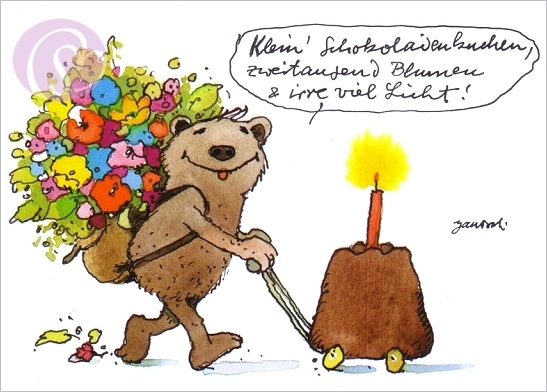 Klein' Schokoladenkuchen,
zweitausend Blumen
& irre viel Licht!
Janosch